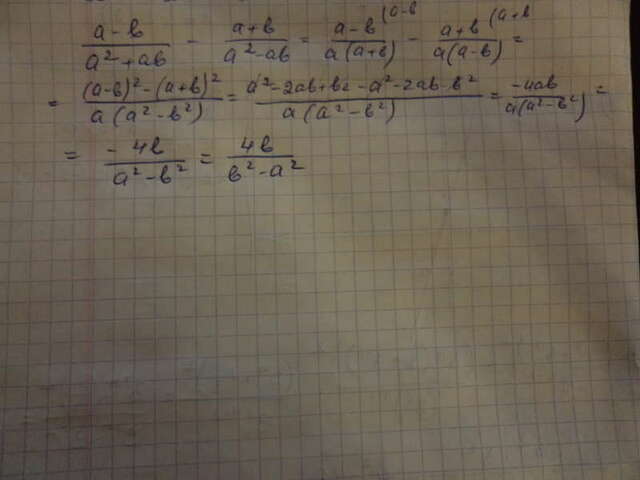 (a-b)/(a²+ab) - (a+b)/(a²-ab) = (a-b (a-b)/(a(a+b)) - (a+b (a+b)/(a(a-b)) =
= ((a-b)²-(a+b)²)/(a(a²-b²)) = (a²-2ab+b²-a²-2ab-b²)/(a(a²-b²)) = (-4ab)/(a(a²-b²)) =
= (-4b)/(a²-b²) = (4b)/(b²-a²)